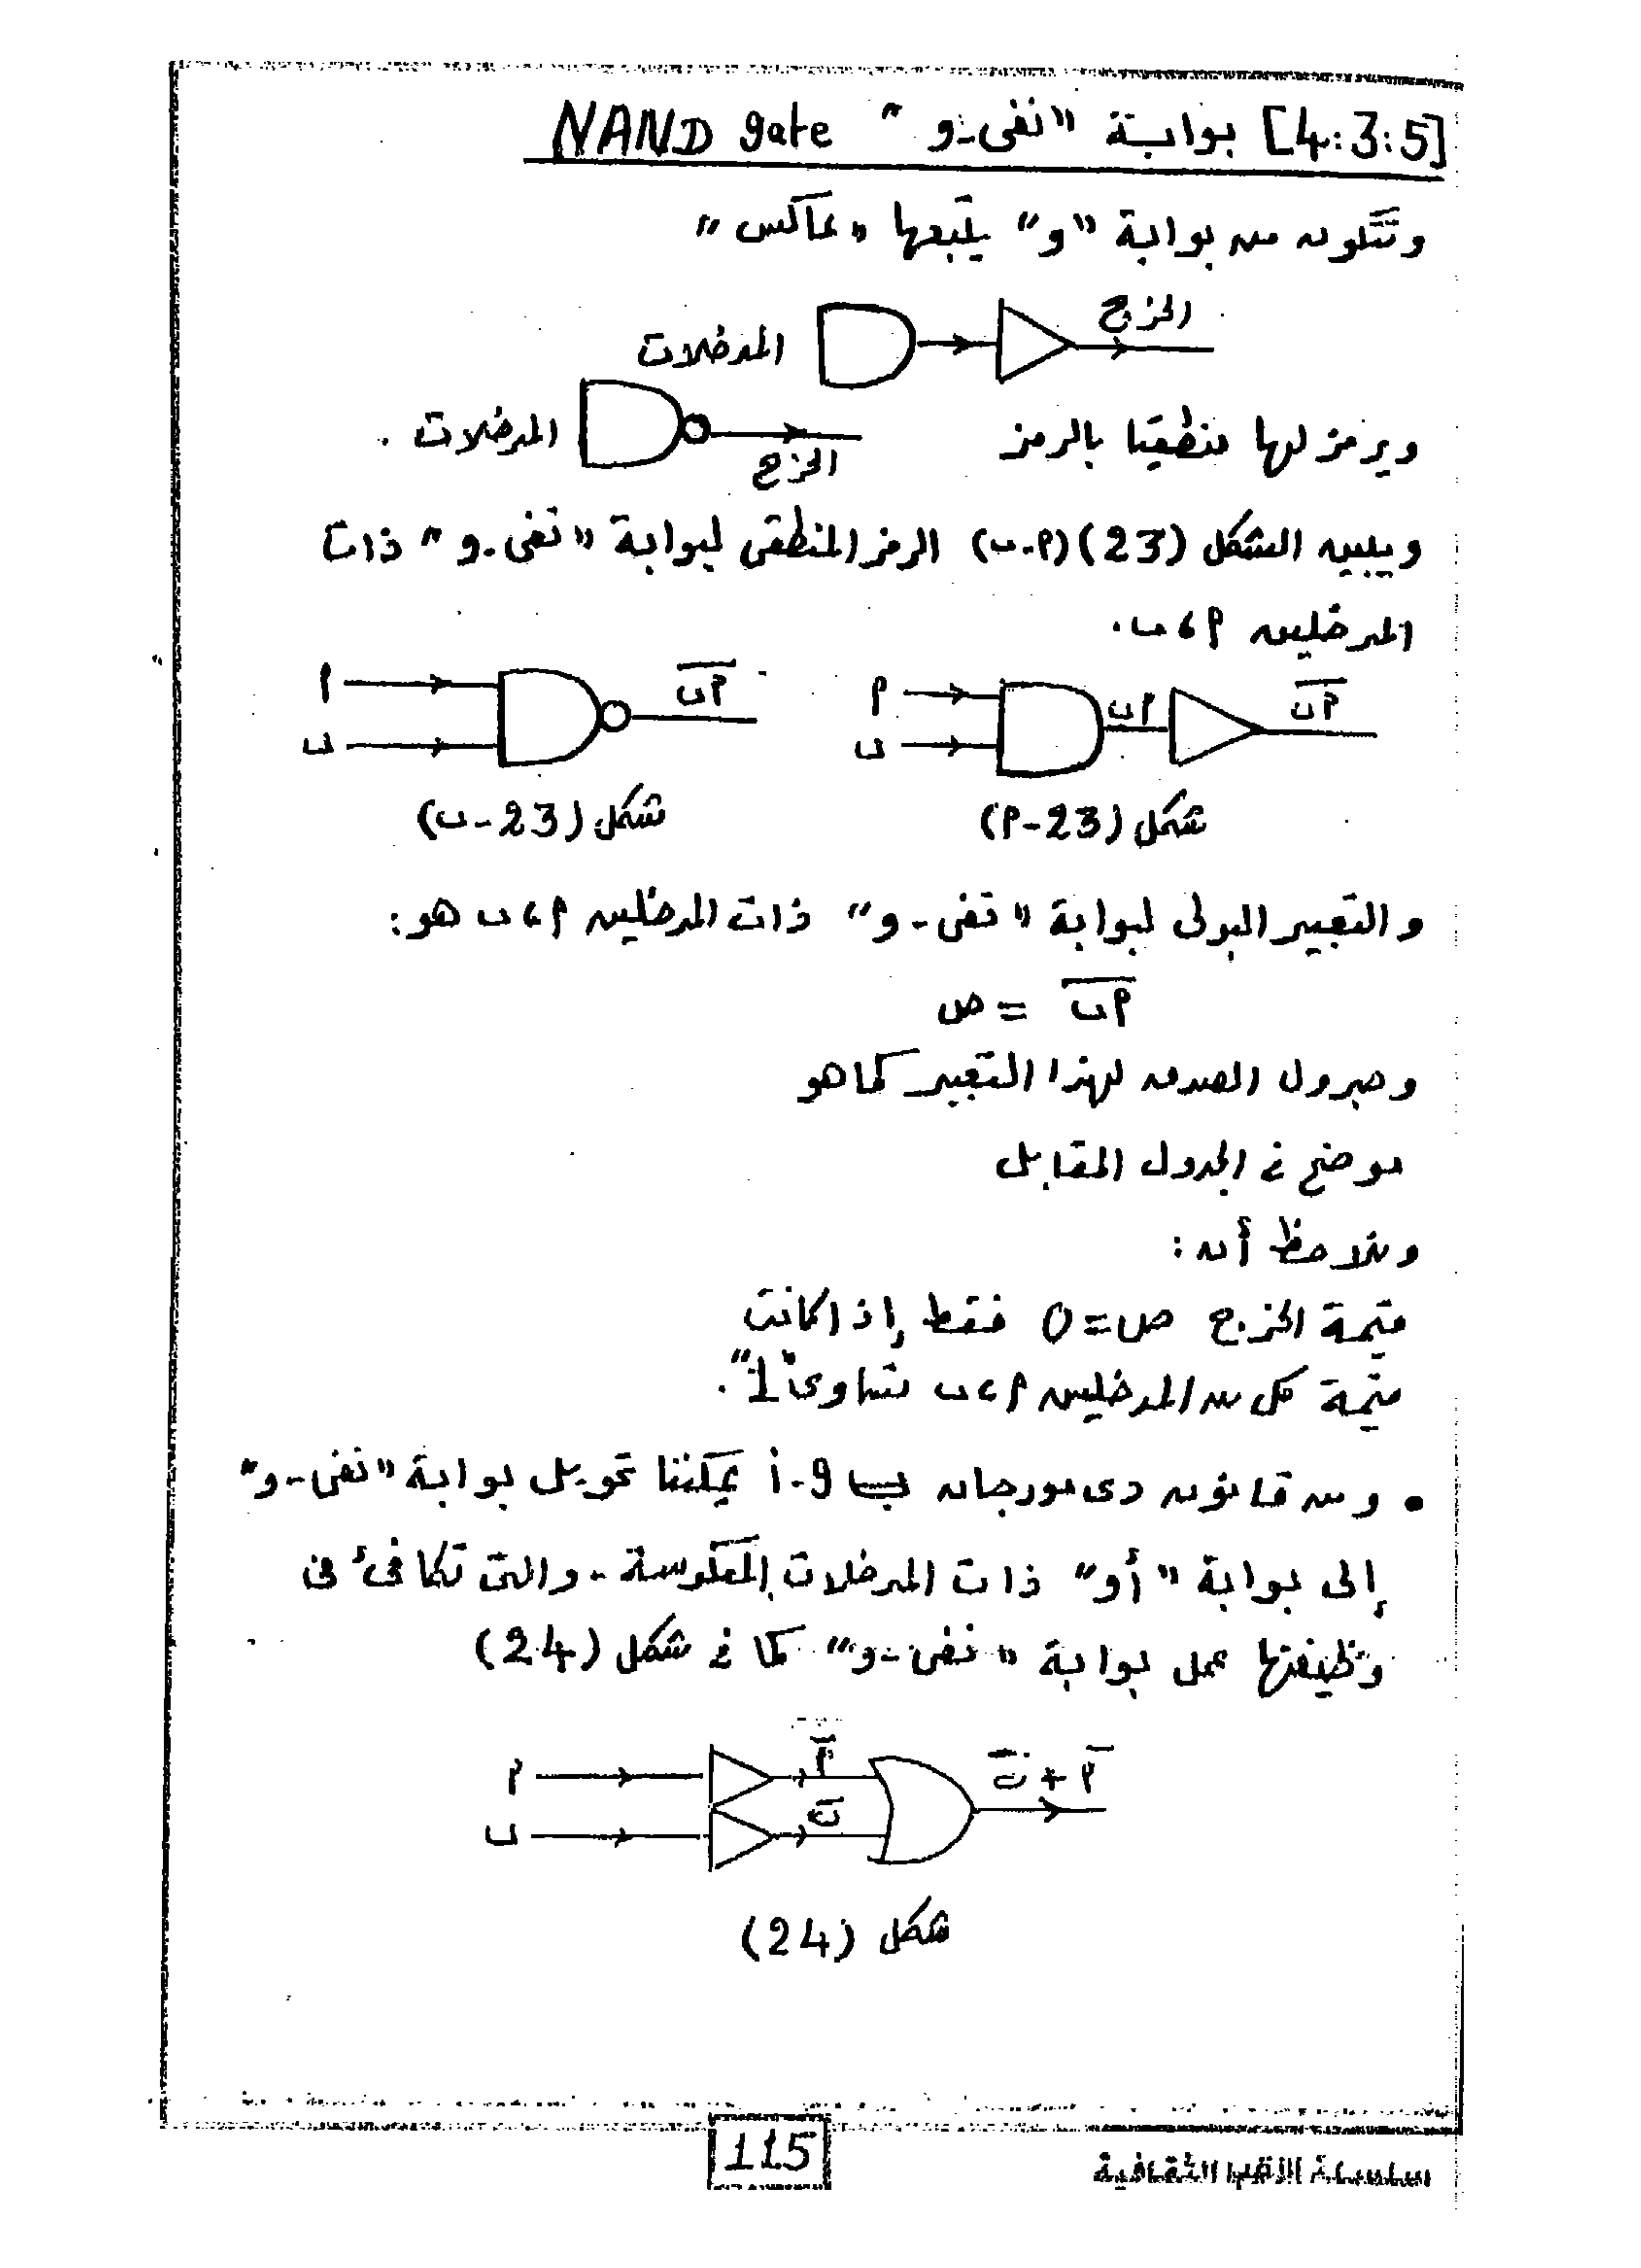 [4:3:5] بوابة "نفى-و" NAND gate
وتتكون من بوابة "و" يتبعها "عاكس"
المدخلات الخرج
ويرمز لها منطقيا بالرمز المدخلات الخرج .
ويبين الشكل (23) (P-ب) الرمز المنطقى لبوابة "نفى-و" ذات
المدخلين P، ب.
P ب Pب P̅ب̅
P ب P̅ب̅
شكل (23-P) شكل (23-ب)
والتعبير البولى لبوابة "نفى-و" ذات المدخلين P، ب هو:
P̅ب̅ = ص
وجدول الصدق لهذا التعبير كما هو
موضح فى الجدول المقابل
ونلاحظ أن:
قيمة الخرج ص=0 فقط إذا كانت
قيمة كل من المدخلين P، ب تساوى "1".
• ومن قانون دى مورجان ب-9-i يمكننا تحويل بوابة "نفى-و"
إلى بوابة "أو" ذات المدخلات المعكوسة - والتى تكافئ فى
وظيفتها عمل بوابة "نفى-و" كما فى شكل (24)
P P̅ P̅ + ب̅
ب ب̅
شكل (24)
115
سلسلة الثقافية